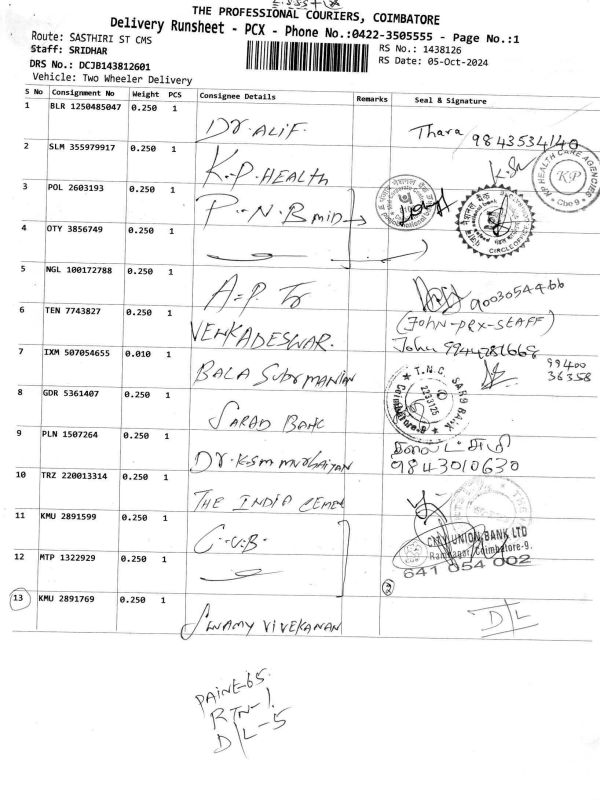 THE PROFESSIONAL COURIERS, COIMBATORE
Delivery Runsheet - PCX - Phone No.:0422-3505555 - Page No.:1
Route: SASTHIRI ST CMS
RS No.: 1438126
Staff: SRIDHAR
RS Date: 05-Oct-2024
DRS No.: DCJB143812601
Vehicle: Two Wheeler Delivery
S No Consignment No Weight PCS Consignee Details Remarks Seal & Signature
1 BLR 1250485047 0.250 1 Dr. ALIF. Thara 9843534140
2 SLM 355979917 0.250 1 K.P. HEALTH
KP HEALTH CARE AGENCIES KP Cbe 9
3 POL 2603193 0.250 1 P.N.B mid
CIRCLE OFFICE
4 OTY 3856749 0.250 1
5 NGL 100172788 0.250 1 9003054466
6 TEN 7743827 0.250 1 VENKADESWAR. (JOHN-DRX-STAFF)
John 9944287668
7 IXM 507054655 0.010 1 BALA Subrmanian 99400
36358
8 GDR 5361407 0.250 1 SARAD BANK
T.N.C. SARB BANK Coimbatore-9
9 PLN 1507264 0.250 1 Dr. K.S.M 9843010630
10 TRZ 220013314 0.250 1 THE INDIA CEMEN
11 KMU 2891599 0.250 1 C.U.B.
CITY UNION BANK LTD
Ramnagar, Coimbatore-9.
641 054 002
12 MTP 1322929 0.250 1
2
13 KMU 2891769 0.250 1 SWAMY VIVEKANAN D/L
PAINT-65
RTN-1
D/L-5